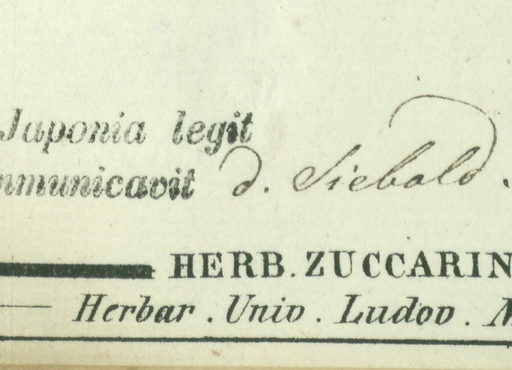 Japonia legit
mmunicavit d. Siebold.
HERB. ZUCCARIN
Herbar. Univ. Ludov. M